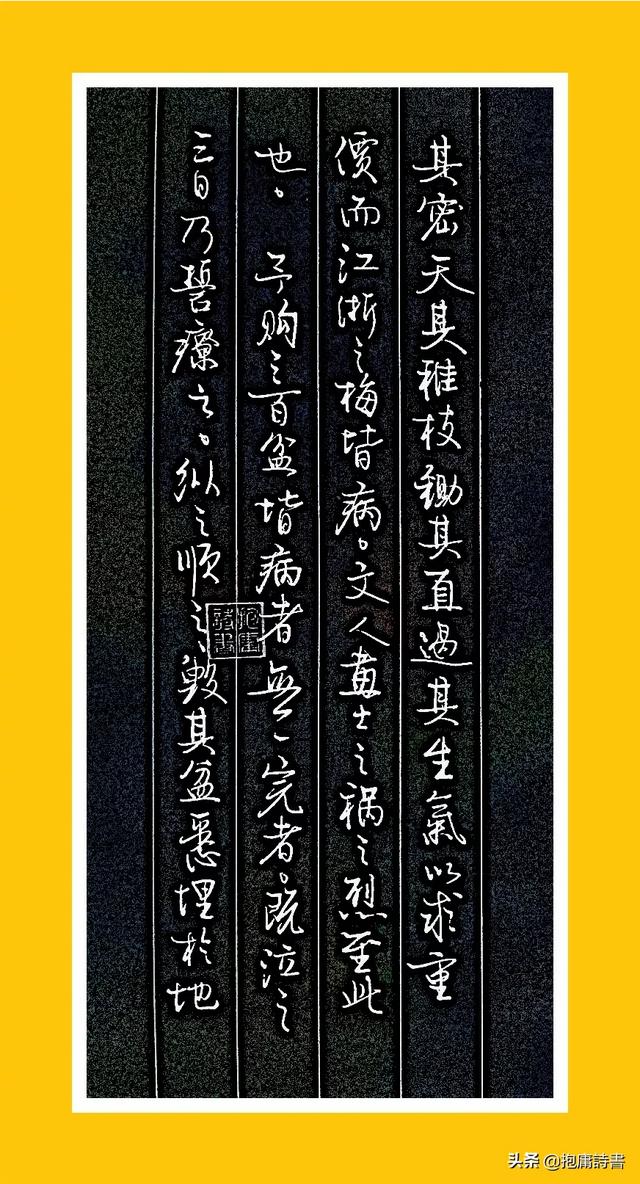 其密夭其稚枝鋤其直遏其生氣以求重
價而江浙之梅皆病。文人畫士之禍之烈至此
也。予购三百盆皆病者無一完者。既泣之
三日乃誓療之。纵之順之毀其盆悉埋於地
头条 @抱庸詩書